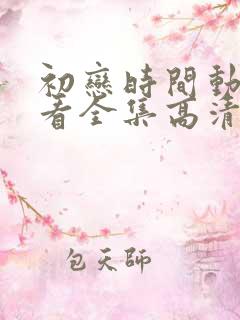 初戀時間動
看全集高清
包天師